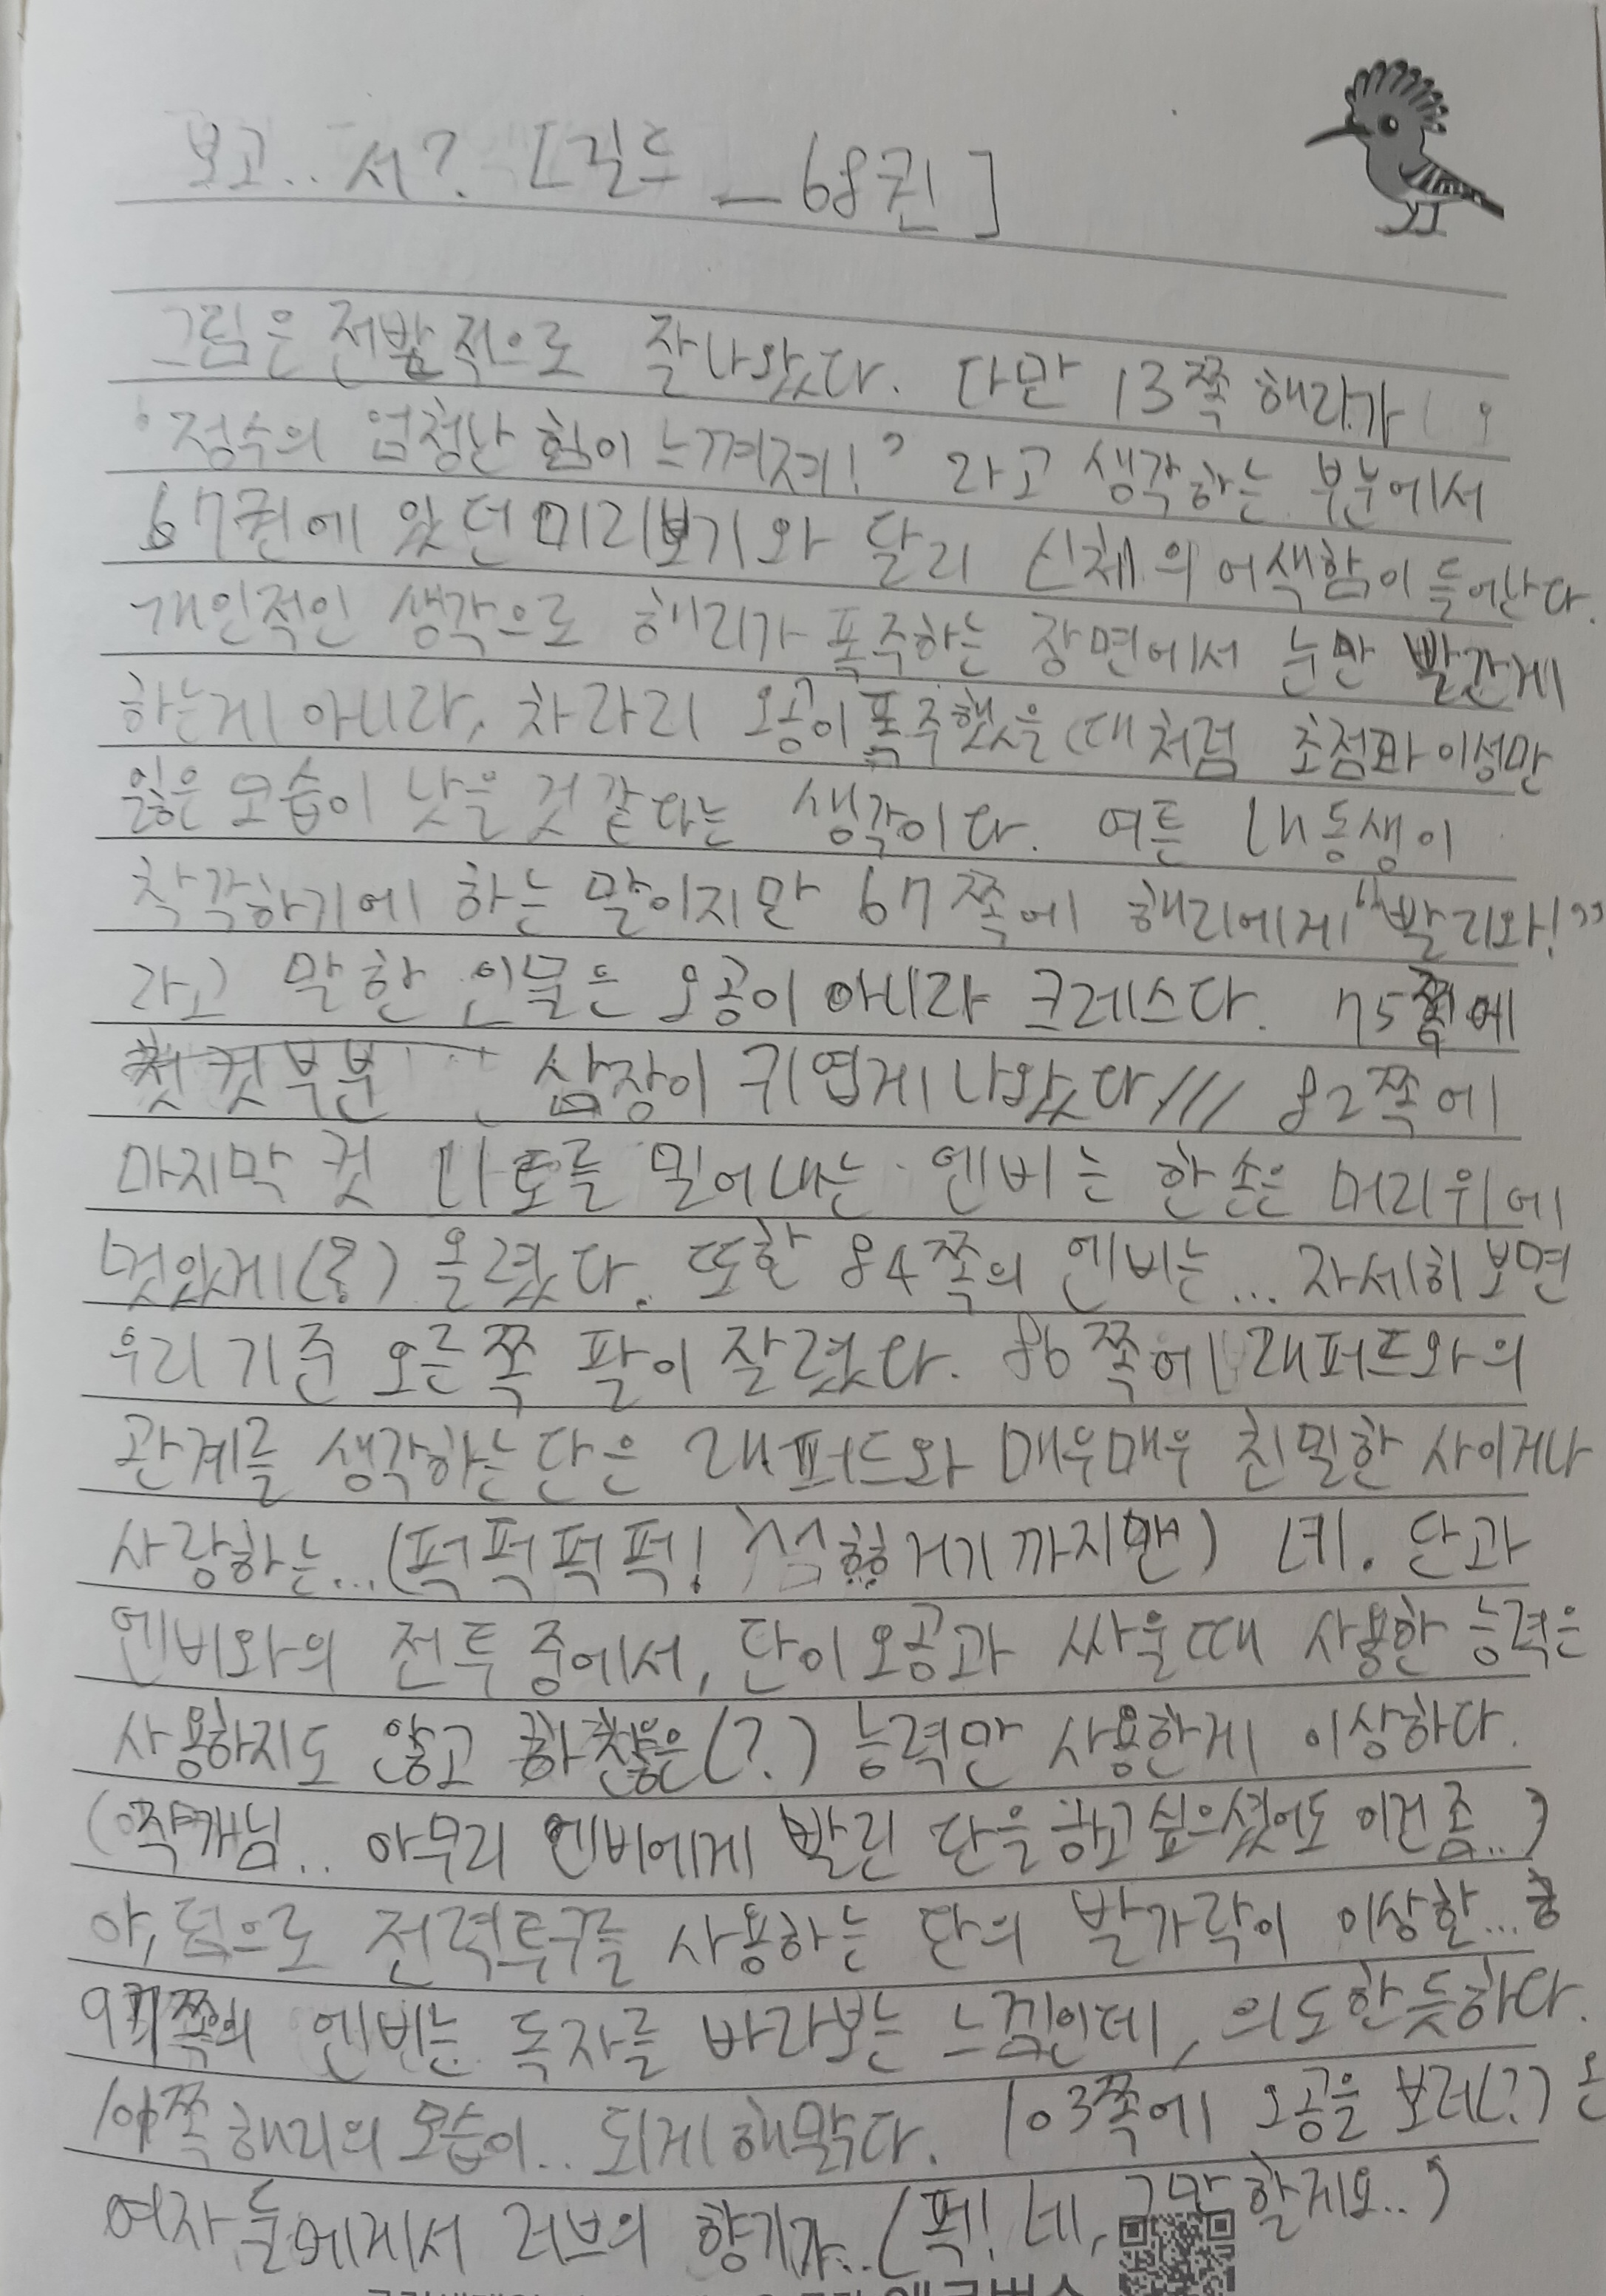 보고.. 서? [길두 _ 68권]
그림은 전반적으로 잘나왔다. 다만 13쪽 해리가
'정수의 엄청난 힘이 느껴져!' 라고 생각하는 부분에서
67권에 있던 미리보기와 달리 신체의 어색함이 들어난다.
개인적인 생각으로 해리가 폭주하는 장면에서 눈만 빨간게
하는게 아니라, 차라리 오공이 폭주했을 때처럼 초점과 이성만
잃은 모습이 낫을 것 같다는 생각이다. 여튼 내 동생이
착각하기에 하는 말이지만 67쪽에 해리에게 "빨리와!"
라고 말한 인물은 오공이 아니라 크레스다. 75쪽에
첫 컷 부분 삼장이 귀엽게 나왔다/// 82쪽에
마지막 컷 를 밀어내는 엔비는 한 손은 머리위에
멋있게(?) 올렸다. 또한 84쪽의 엔비는... 자세히 보면
우리 기준 오른쪽 팔이 잘렸다. 86쪽에 래퍼드와의
관계를 생각하는 단은 래퍼드와 매우매우 친밀한 사이거나
사랑하는...(퍽퍽퍽퍽! 거기까지맨) 네. 단과
엔비와의 전투 중에서, 단이 오공과 싸울때 사용한 능력은
사용하지도 않고 하찮은(?) 능력만 사용한게 이상하다.
(작가님.. 아무리 엔비에게 발린 단을 하고 싶으셨어도 이건 좀..)
아, 덤으로 전력투구를 사용하는 단의 발가락이 이상한...
97쪽의 엔비는 독자를 바라보는 느낌인데, 의도한듯하다.
쪽 해리의 모습이.. 되게 해맑다. 103쪽에 오공을 보러(?) 온
여자들에게서 러브의 향기가..(퍽! 네, 그만 할게요..)